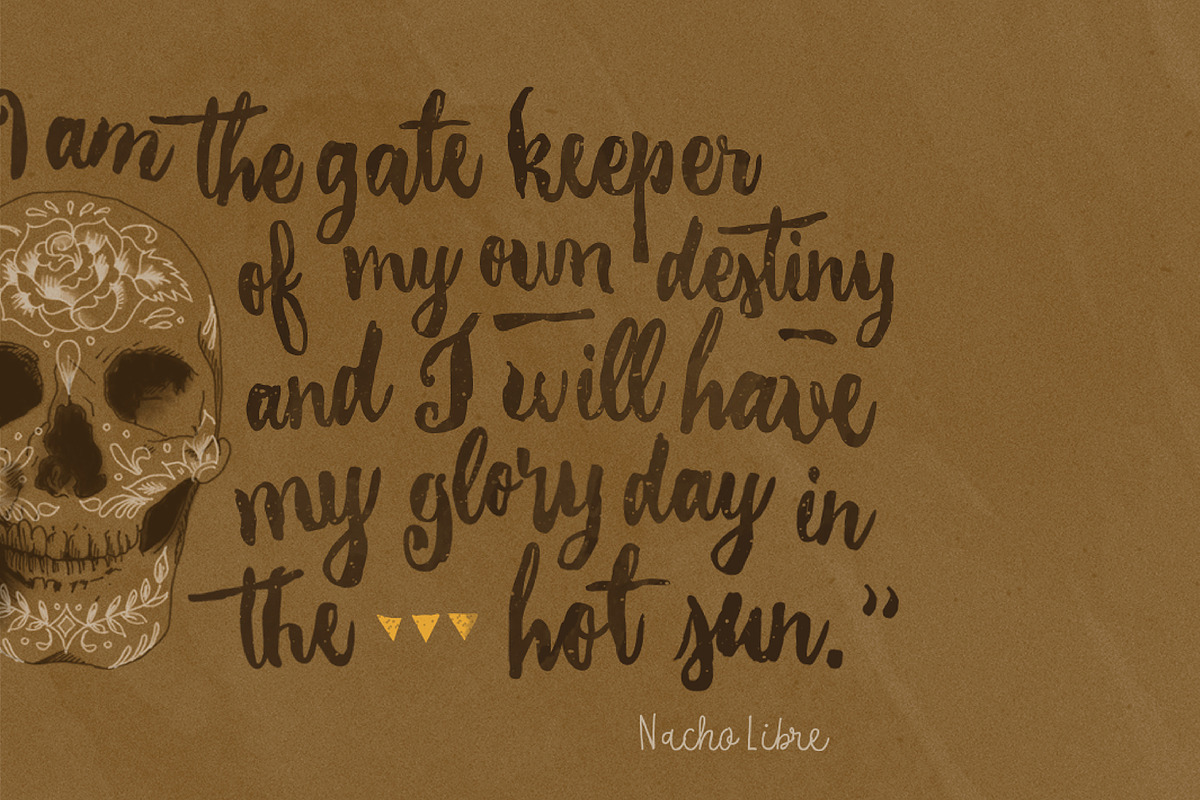 I am the gate keeper
of my own destiny
and I will have
my glory day in
the hot sun.”
Nacho Libre